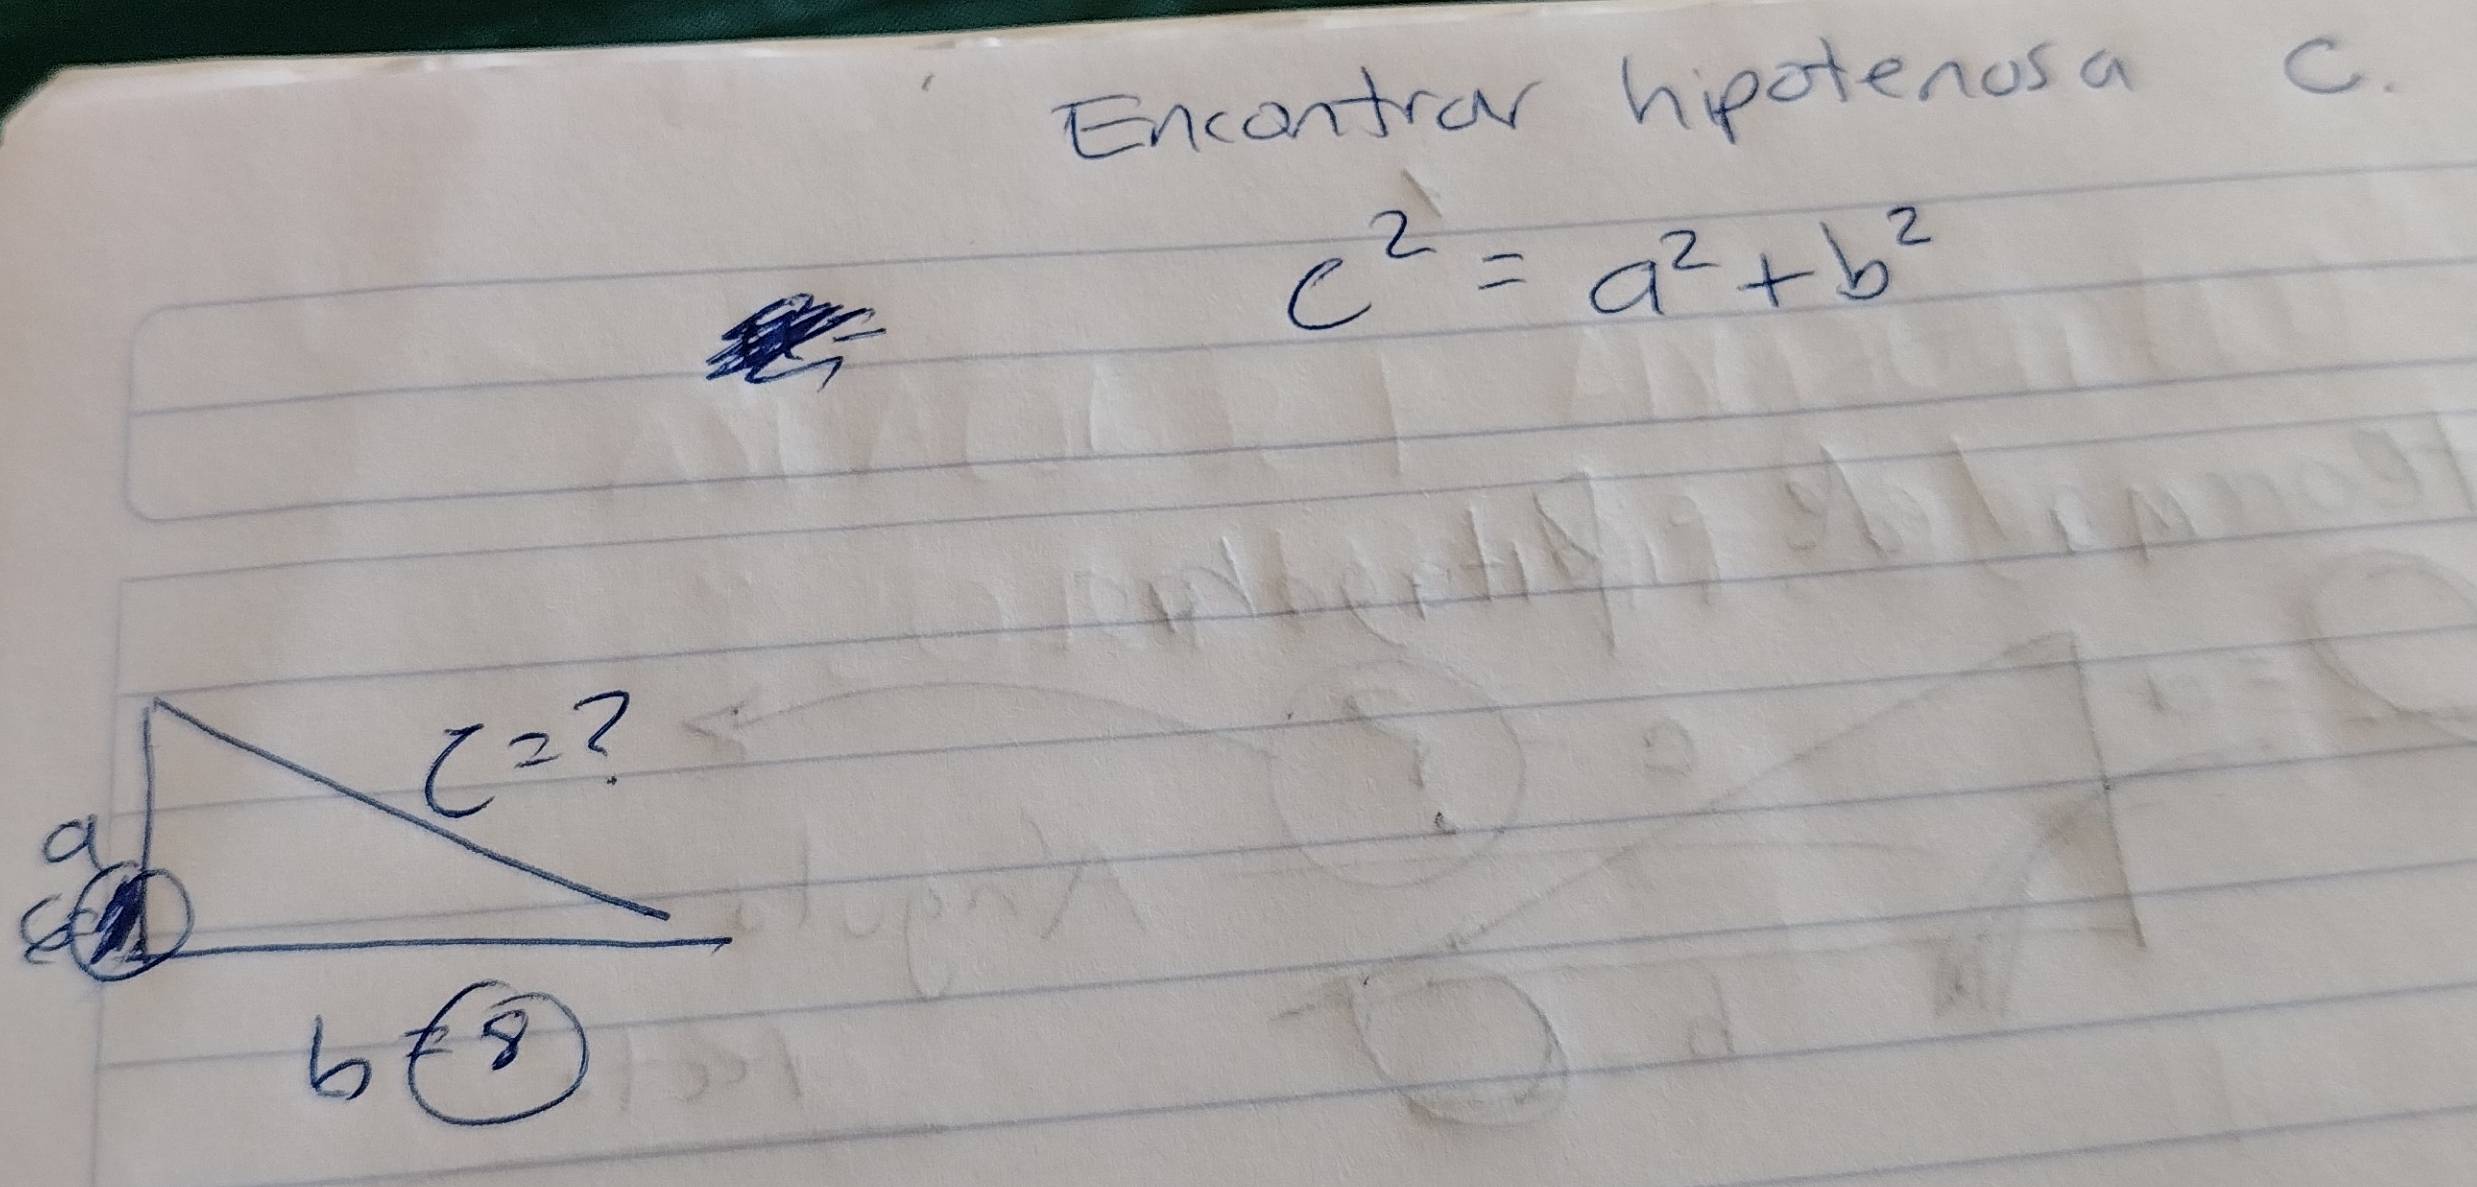 Encontrar hipotenusa c.
c² = a² + b²
c = ?
a
b = 8